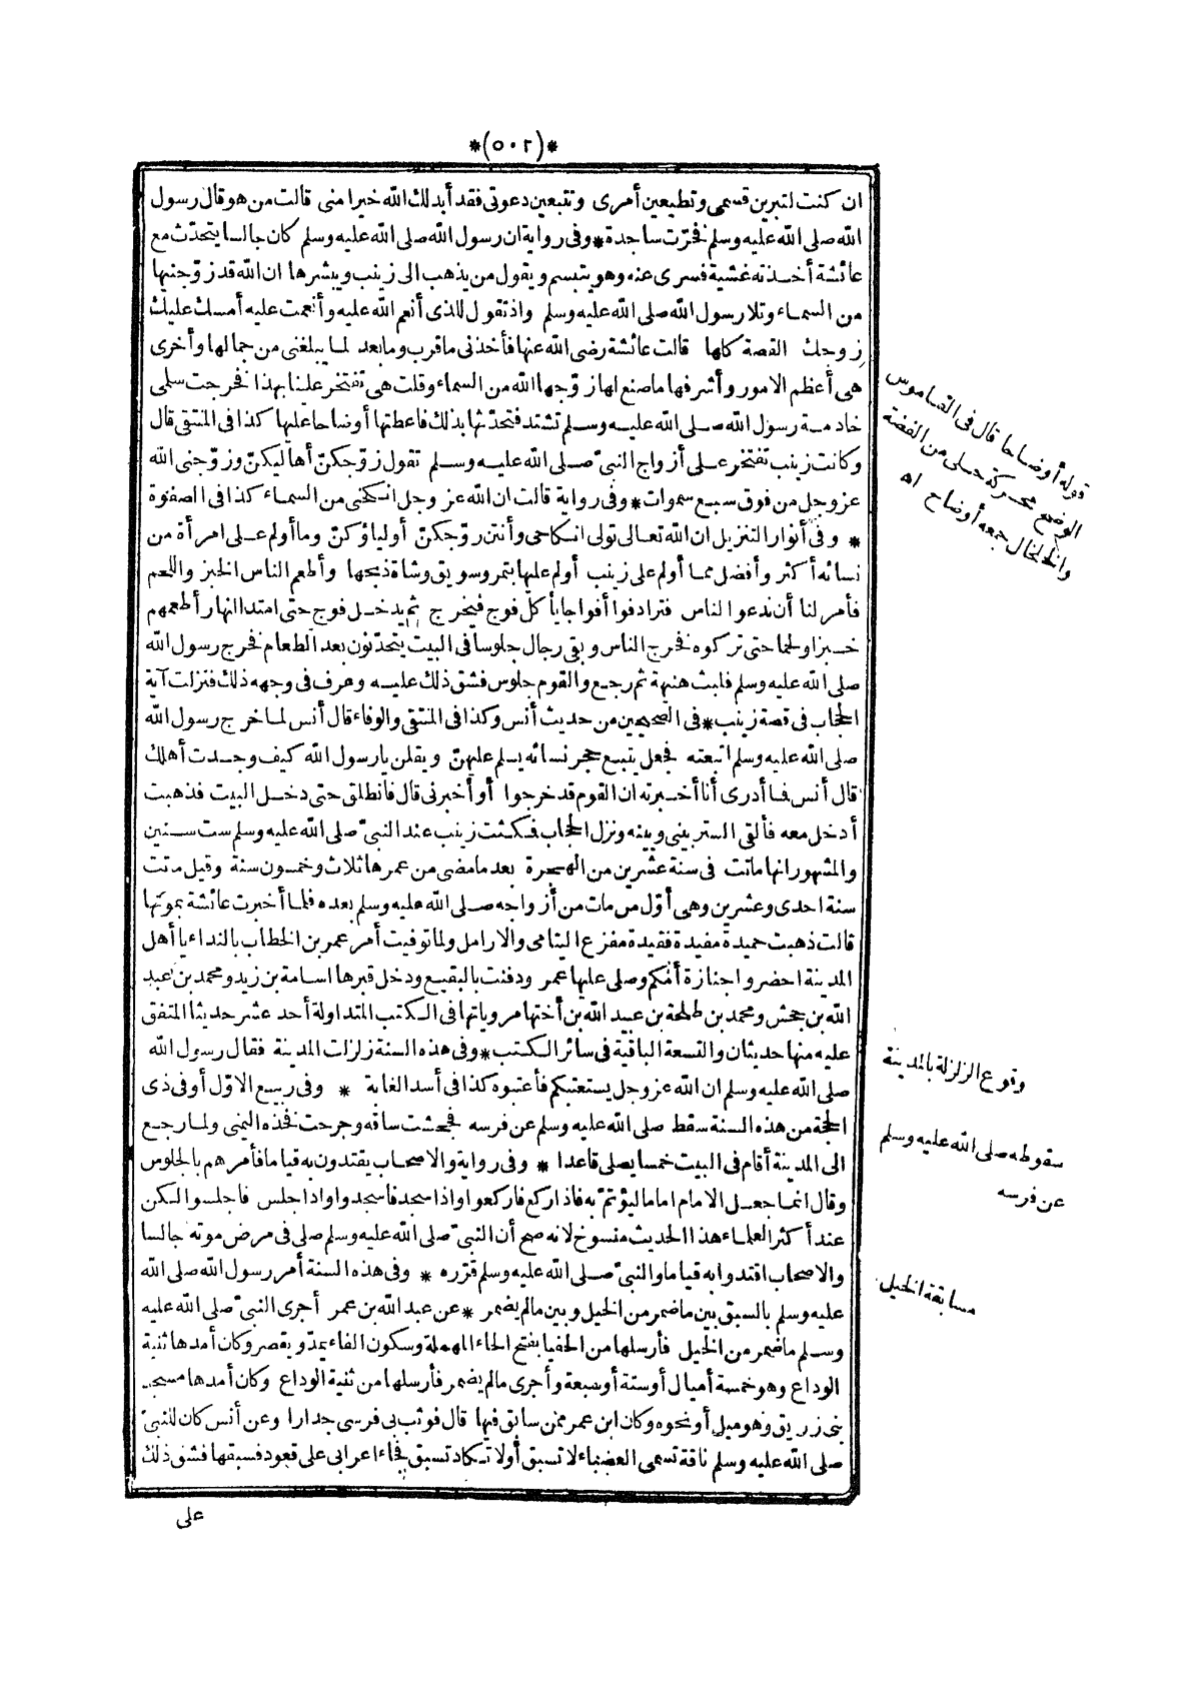 *(٥٠٢)*
ان كنت لتبرين قسمى وتطيعين أمرى وتتبعين دعوتى فقد أبدلك الله خيرا منى قالت من هو قال رسول
الله صلى الله عليه وسلم فخرّت ساجدة * وفى رواية ان رسول الله صلى الله عليه وسلم كان جالسا يتحدّث مع
عائشة أخذته غشية فسرى عنه وهو يتبسم ويقول من يذهب الى زينب ويبشرها ان الله قد زوّجنيها
من السماء وتلا رسول الله صلى الله عليه وسلم واذ تقول للذى أنعم الله عليه وأنعمت عليه أمسك عليك
زوجك القصة كلها قالت عائشة رضى الله عنها فأخذنى ما قرب وما بعد لما يبلغنى من جمالها وأخرى
هى أعظم الامور وأشرفها ما صنع لها زوّجها الله من السماء وقلت هى تفتخر علينا بهذا فخرجت سلمى
خادمة رسول الله صلى الله عليه وسلم تشتد فتحدّثها بذلك فاعطتها أوضاحا عليها كذا فى المنتقى قال
وكانت زينب تفتخر على أزواج النبىّ صلى الله عليه وسلم تقول زوّجكنّ أهاليكن وزوّجنى الله
عز وجل من فوق سبع سموات * وفى رواية قالت ان الله عز وجل انكحنى من السماء كذا فى الصفوة
* وفى أنوار التنزيل ان الله تعالى تولى انكاحى وأنتن زوّجكنّ أولياؤكنّ وما أولم على امرأة من
نسائه أكثر وأفضل مما أولم على زينب أولم عليها بتمر وسويق وشاة ذبحها وأطعم الناس الخبز واللحم
فأمر لنا أن ندعوا الناس فترادفوا أفواجا يأكل فوج فيخرج ثم يدخل فوج حتى امتد النهار أطعمهم
خبزا ولحما حتى تركوه فخرج الناس وبقى رجال جلوسا فى البيت يتحدّثون بعد الطعام فخرج رسول الله
صلى الله عليه وسلم فلبث هنيهة ثم رجع والقوم جلوس فشق ذلك عليه وعرف فى وجهه ذلك فنزلت آية
الحجاب فى قصة زينب * فى الصحيحين من حديث أنس وكذا فى المنتقى والوفاء قال أنس لما خرج رسول الله
صلى الله عليه وسلم اتبعته فجعل يتبع حجر نسائه يسلم عليهنّ ويقلن يارسول الله كيف وجدت أهلك
قال أنس فما أدرى أنا أخبرته ان القوم قد خرجوا أو أخبرنى قال فانطلق حتى دخل البيت فذهبت
أدخل معه فألقى الستر بينى وبينه ونزل الحجاب فمكثت زينب عند النبىّ صلى الله عليه وسلم ست سنين
والمشهور انها ماتت فى سنة عشرين من الهجرة بعد ما مضى من عمرها ثلاث وخمسون سنة وقيل ماتت
سنة احدى وعشرين وهى أوّل من مات من أزواجه صلى الله عليه وسلم بعده فلما أخبرت عائشة بموتها
قالت ذهبت حميدة مفيدة فقيدة مفزع اليتامى والارامل ولما توفيت أمر عمر بن الخطاب بالنداء يا أهل
المدينة احضروا جنازة أمّكم وصلى عليها عمر ودفنت بالبقيع ودخل قبرها اسامة بن زيد ومحمد بن عبد
الله بن جحش ومحمد بن طلحة بن عبد الله بن أختها مروياتها فى الكتب المتداولة أحد عشر حديثا المتفق
عليه منها حديثان والتسعة الباقية فى سائر الكتب * وفى هذه السنة زلزلت المدينة فقال رسول الله
صلى الله عليه وسلم ان الله عز وجل يستعتبكم فأعتبوه كذا فى أسد الغابة * وفى ربيع الاوّل أو فى ذى
الحجة من هذه السنة سقط صلى الله عليه وسلم عن فرسه فجحشت ساقه وجرحت فخذه اليمنى ولما رجع
الى المدينة أقام فى البيت خمسا يصلى قاعدا * وفى رواية والاصحاب يقتدون به قياما فأمرهم بالجلوس
وقال انما جعل الامام اماما ليؤتمّ به فاذا ركع فاركعوا واذا سجد فاسجدوا واذا جلس فاجلسوا لكن
عند أكثر العلماء هذا الحديث منسوخ لانه صح أن النبىّ صلى الله عليه وسلم صلى فى مرض موته جالسا
والاصحاب اقتدوا به قياما والنبىّ صلى الله عليه وسلم قرّره * وفى هذه السنة أمر رسول الله صلى الله
عليه وسلم بالسبق بين ما ضمر من الخيل وبين مالم يضمر * عن عبد الله بن عمر أجرى النبىّ صلى الله عليه
وسلم ما ضمر من الخيل فأرسلها من الحفيا بفتح الحاء المهملة وسكون الفاء يمدّ ويقصر وكان أمدها ثنية
الوداع وهو خمسة أميال أو ستة أو سبعة وأجرى مالم يضمر فأرسلها من ثنية الوداع وكان أمدها مسجد
بنى زريق وهو ميل أو نحوه وكان ابن عمر ممن سابق فيها قال فوثب بى فرسى جدارا وعن أنس كان للنبىّ
صلى الله عليه وسلم ناقة تسمى العضباء لا تسبق أولا تكاد تسبق فجاء اعرابى على قعود فسبقها فشق ذلك
على
قوله أوضاحا قال فى القاموس
الوضح محركة حلى من الفضة
والخلخال جمعه أوضاح اه
وقوع الزلزلة بالمدينة
سقوطه صلى الله عليه وسلم
عن فرسه
مسابقة الخيل